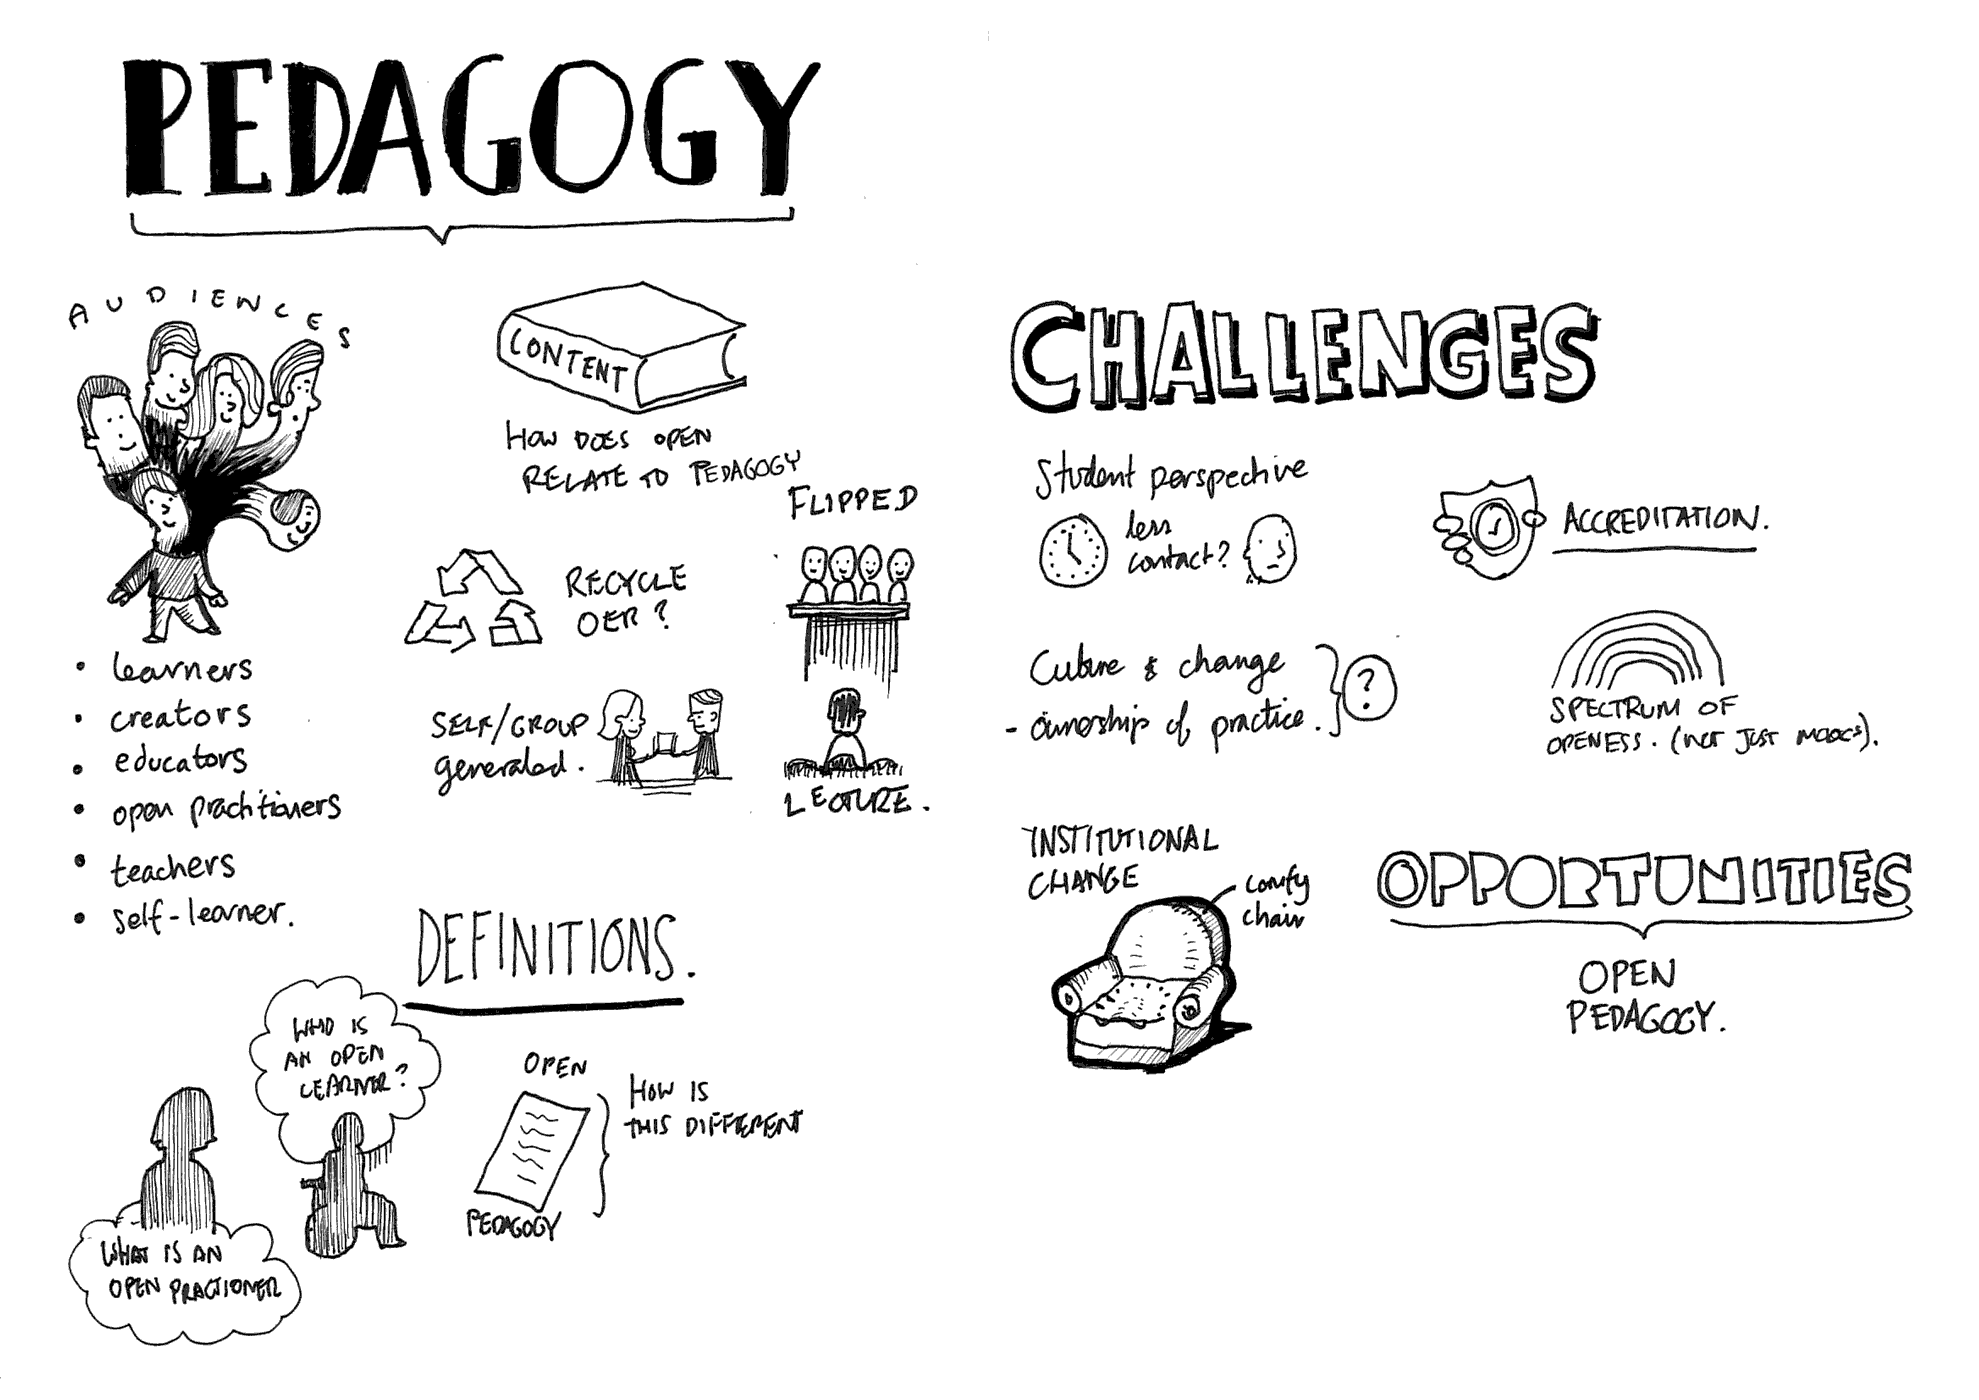 PEDAGOGY
AUDIENCES
• learners
• creators
• educators
• open practitioners
• teachers
• self-learner.
CONTENT
HOW DOES OPEN
RELATE TO PEDAGOGY
RECYCLE
OER?
SELF/GROUP
generated.
FLIPPED
LECTURE.
DEFINITIONS.
WHO IS
AN OPEN
LEARNER?
WHAT IS AN
OPEN PRACTIONER
OPEN
PEDAGOGY
HOW IS
THIS DIFFERENT
CHALLENGES
Student perspective
less
contact?
ACCREDITATION.
Culture & change
- ownership of practice.
?
SPECTRUM OF
OPENESS. (NOT JUST MOOCS).
INSTITUTIONAL
CHANGE
comfy
chair
OPPORTUNITIES
OPEN
PEDAGOGY.